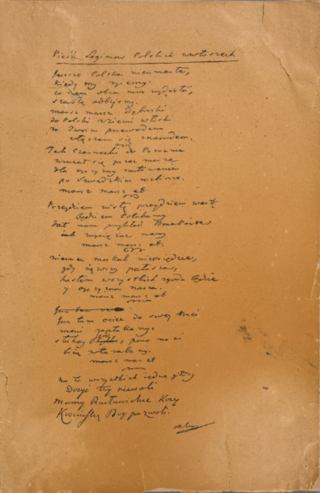 Pieśń Legionów Polskich we Włoszech
Jeszcze Polska nieumarła,
kiedy my żyjemy
co nam obca moc wydarła,
szablą odbijemy.
marsz marsz Dąbrowski
do Polski z ziemi włoski
za Twoim przewodem
złączem się z narodem.
Jak Czarnecki do Poznania
wracał się przez morze
dla ojczyzny ratowania
po szwedzkim rozbiorze.
marsz marsz et.
Przejdziem Wisłę przejdziem Wartę
będziem Polakami
dał nam przykład Bonaparte
jak zwyciężać mamy
marsz marsz et.
niemiec moskal nieosiędzie,
gdy jąwszy pałasza,
hasłem wszystkich zgoda będzie
y ojczyzna nasza.
marsz marsz et
Już tam ociec do swej Basi
mówi zapłakany:
słuchaj, pono nasi
biją w tarabany.
marsz marsz et
na to wszystkich jedne głosy
Dosyć tej niewoli
Mamy Racławickie Kosy
Kosciuszkę Bóg pozwoli.